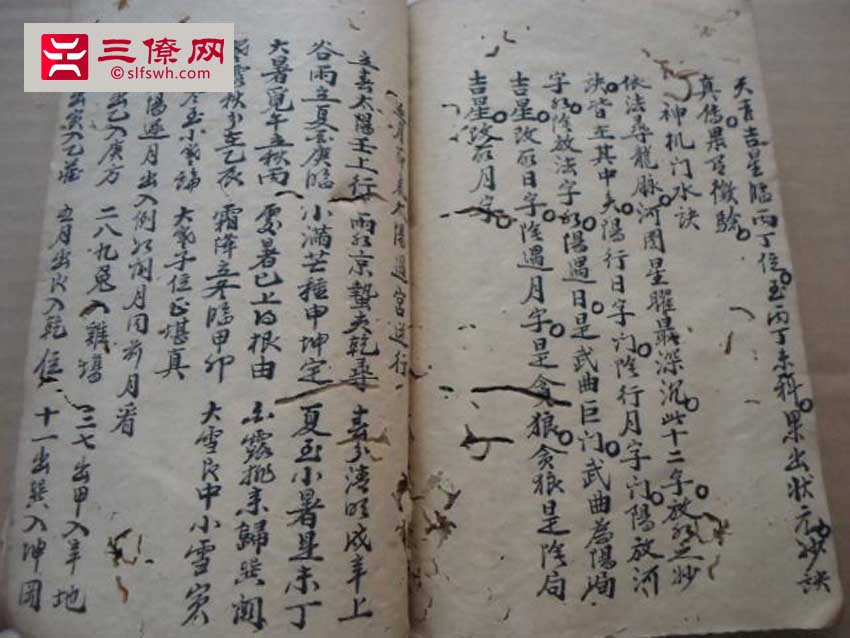 三僚网
slfswh.com
天青吉星臨丙丁位至丙丁未科果出狀元妙訣
真傳果有徵驗
神机门水訣
依法尋龍脉河图星曜最深沉此十二字放水之妙
訣皆在其中太陽行日字门陰行月字门陽放河
字水陰放法字水陽遇日是武曲巨门武曲為陽局
吉星改取日字陰遇月字是貪狼貪狼是陰局
吉星改取月字
太陽過宮逆行
立春太陽壬上行 雨水京蟄夫乾尋 春分清明戌辛上
谷雨立夏至庚臨 小滿芒種申坤定 夏至小暑是未丁
大暑覓午立秋丙 處暑巳上白根由 白露挑未歸巽
秋分在乙辰 霜降立冬臨甲卯 大雪艮中小雪寅
冬至小寒論 大寒子位正堪真
陽逐月出入例水闰月同前月看
出乙入庚方 二八兔入雞塲 三七出甲入辛地
出寅入 五月出艮入乾位 十一出巽入坤